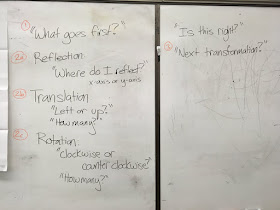 ① "What goes first?"
2a Reflection:
"Where do I reflect?"
x-axis or y-axis
2b Translation
"Left or up?"
"How many?"
2c Rotation:
"clockwise or
counterclockwise?"
"How many?"
"Is this right?"
③ "Next transformation?"